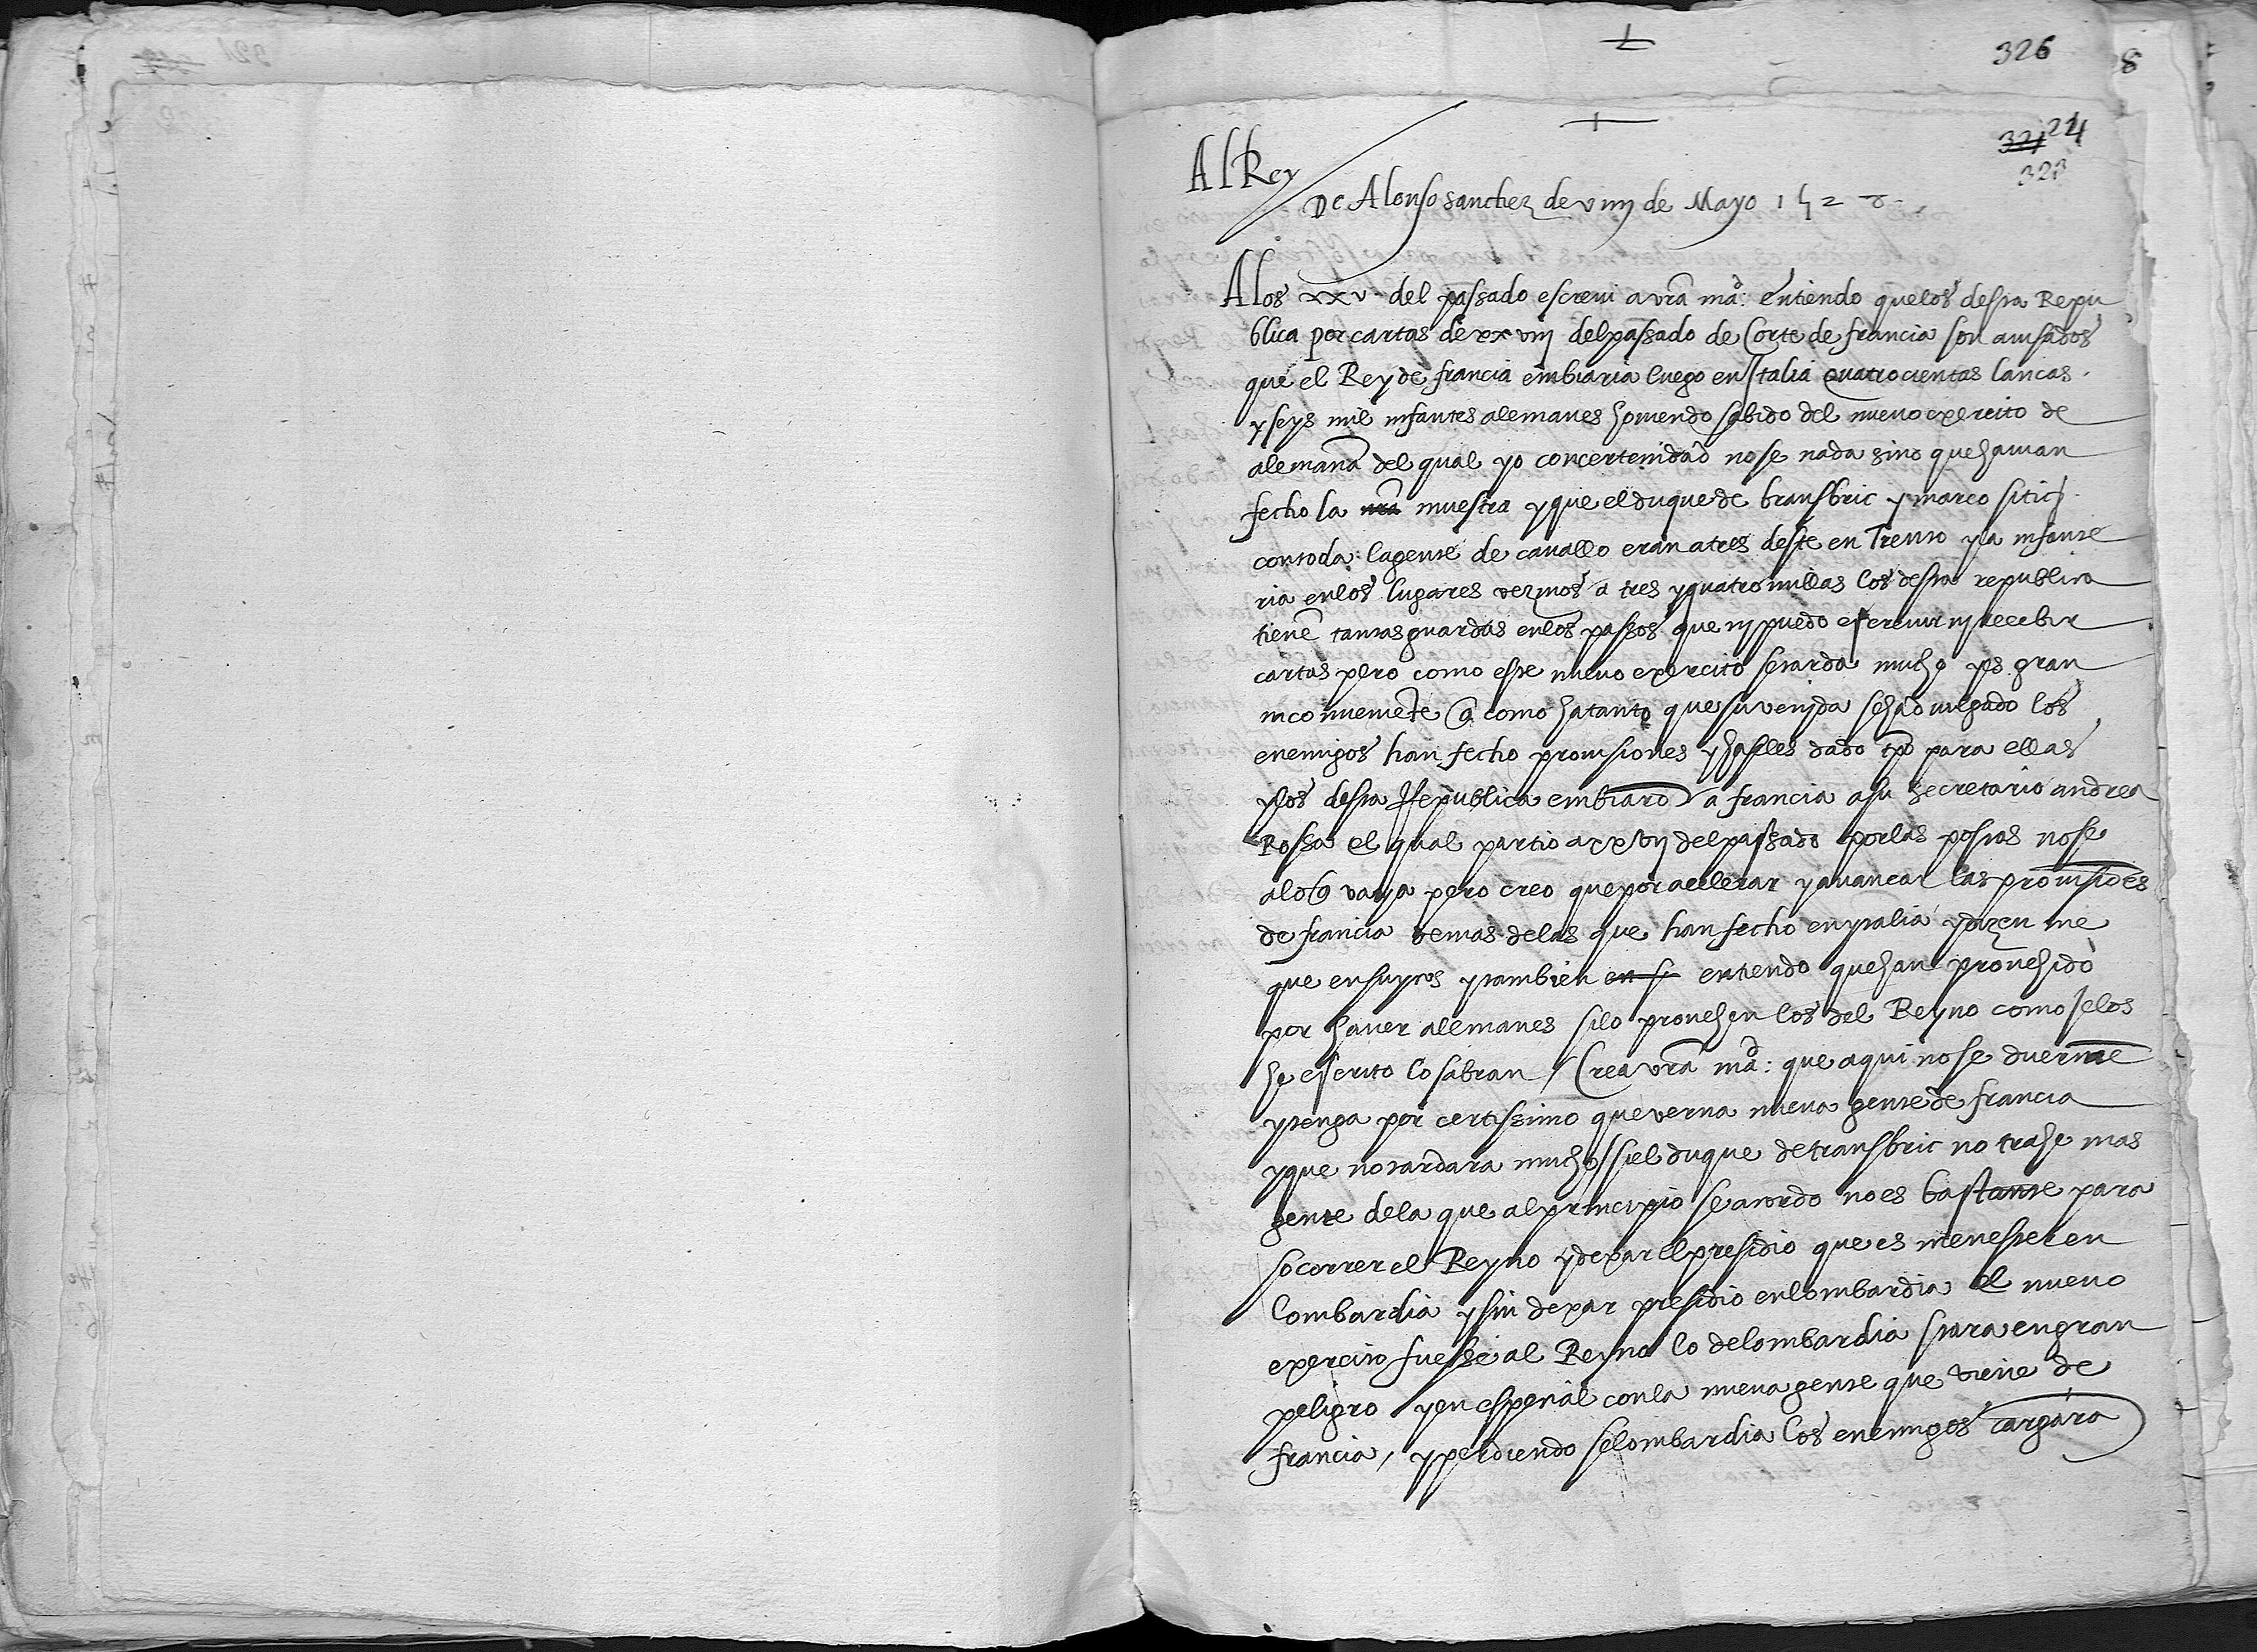 326
8
321 24
323
Al Rey
De Alonso sanchez de viiij de Mayo 1528.
A los xxv del passado escreui a vra mad: entiendo que los desta Repu
blica por cartas de xxviij del passado de Corte de francia son auisados
que el Rey de francia embiaria luego en Italia quatrocientas lancas.
y seys mil infantes alemanes hauiendo sabido del nueuo exercito de
alemana del qual yo con certenidad no se nada sino que hauian
fecho la mra muestra y que el duque de bransbric y marco sitich
con toda la gente de cauallo eran a tres deste en Trento y la infante
ria en los lugares vezinos a tres y quatro millas los desta republica
tiene tantas guardas en los passos que ni puedo escreuir ni recebir
cartas pero como este nueuo exercito se tarda mucho y es gran
inconueniete q como ha tanto que su venida se ha diuulgado los
enemigos han fecho prouisiones y hasles dado tpo para ellas
y los desta Republica embiaro a francia a su secretario andrea
Rosso el qual partio a xxvij del passado por las postas no se
a lo q vaya pero creo que por acelerar y auancar las prouisioes
de francia demas de las que han fecho en ytalia y dizen me
que en suyços y tambien en s entiendo que han prouehido
por hauer alemanes si lo prouehen los del Reyno como se los
he escrito lo sabran / Crea vra mad: que aqui no se duerme
y tenga por certissimo que verna nueua gente de francia
y que no tardara mucho / si el duque de transbric no trahe mas
gente de la que al principio se acordo no es bastante para
socorrer el Reyno y dexar el presidio que es menester en
lombardia y sin dexar presidio en lombardia el nueuo
exercito fuesse al Reyno lo de lombardia stara en gran
peligro y en special con la nueua gente que viene de
francia, y perdiendo se lombardia los enemigos cargara